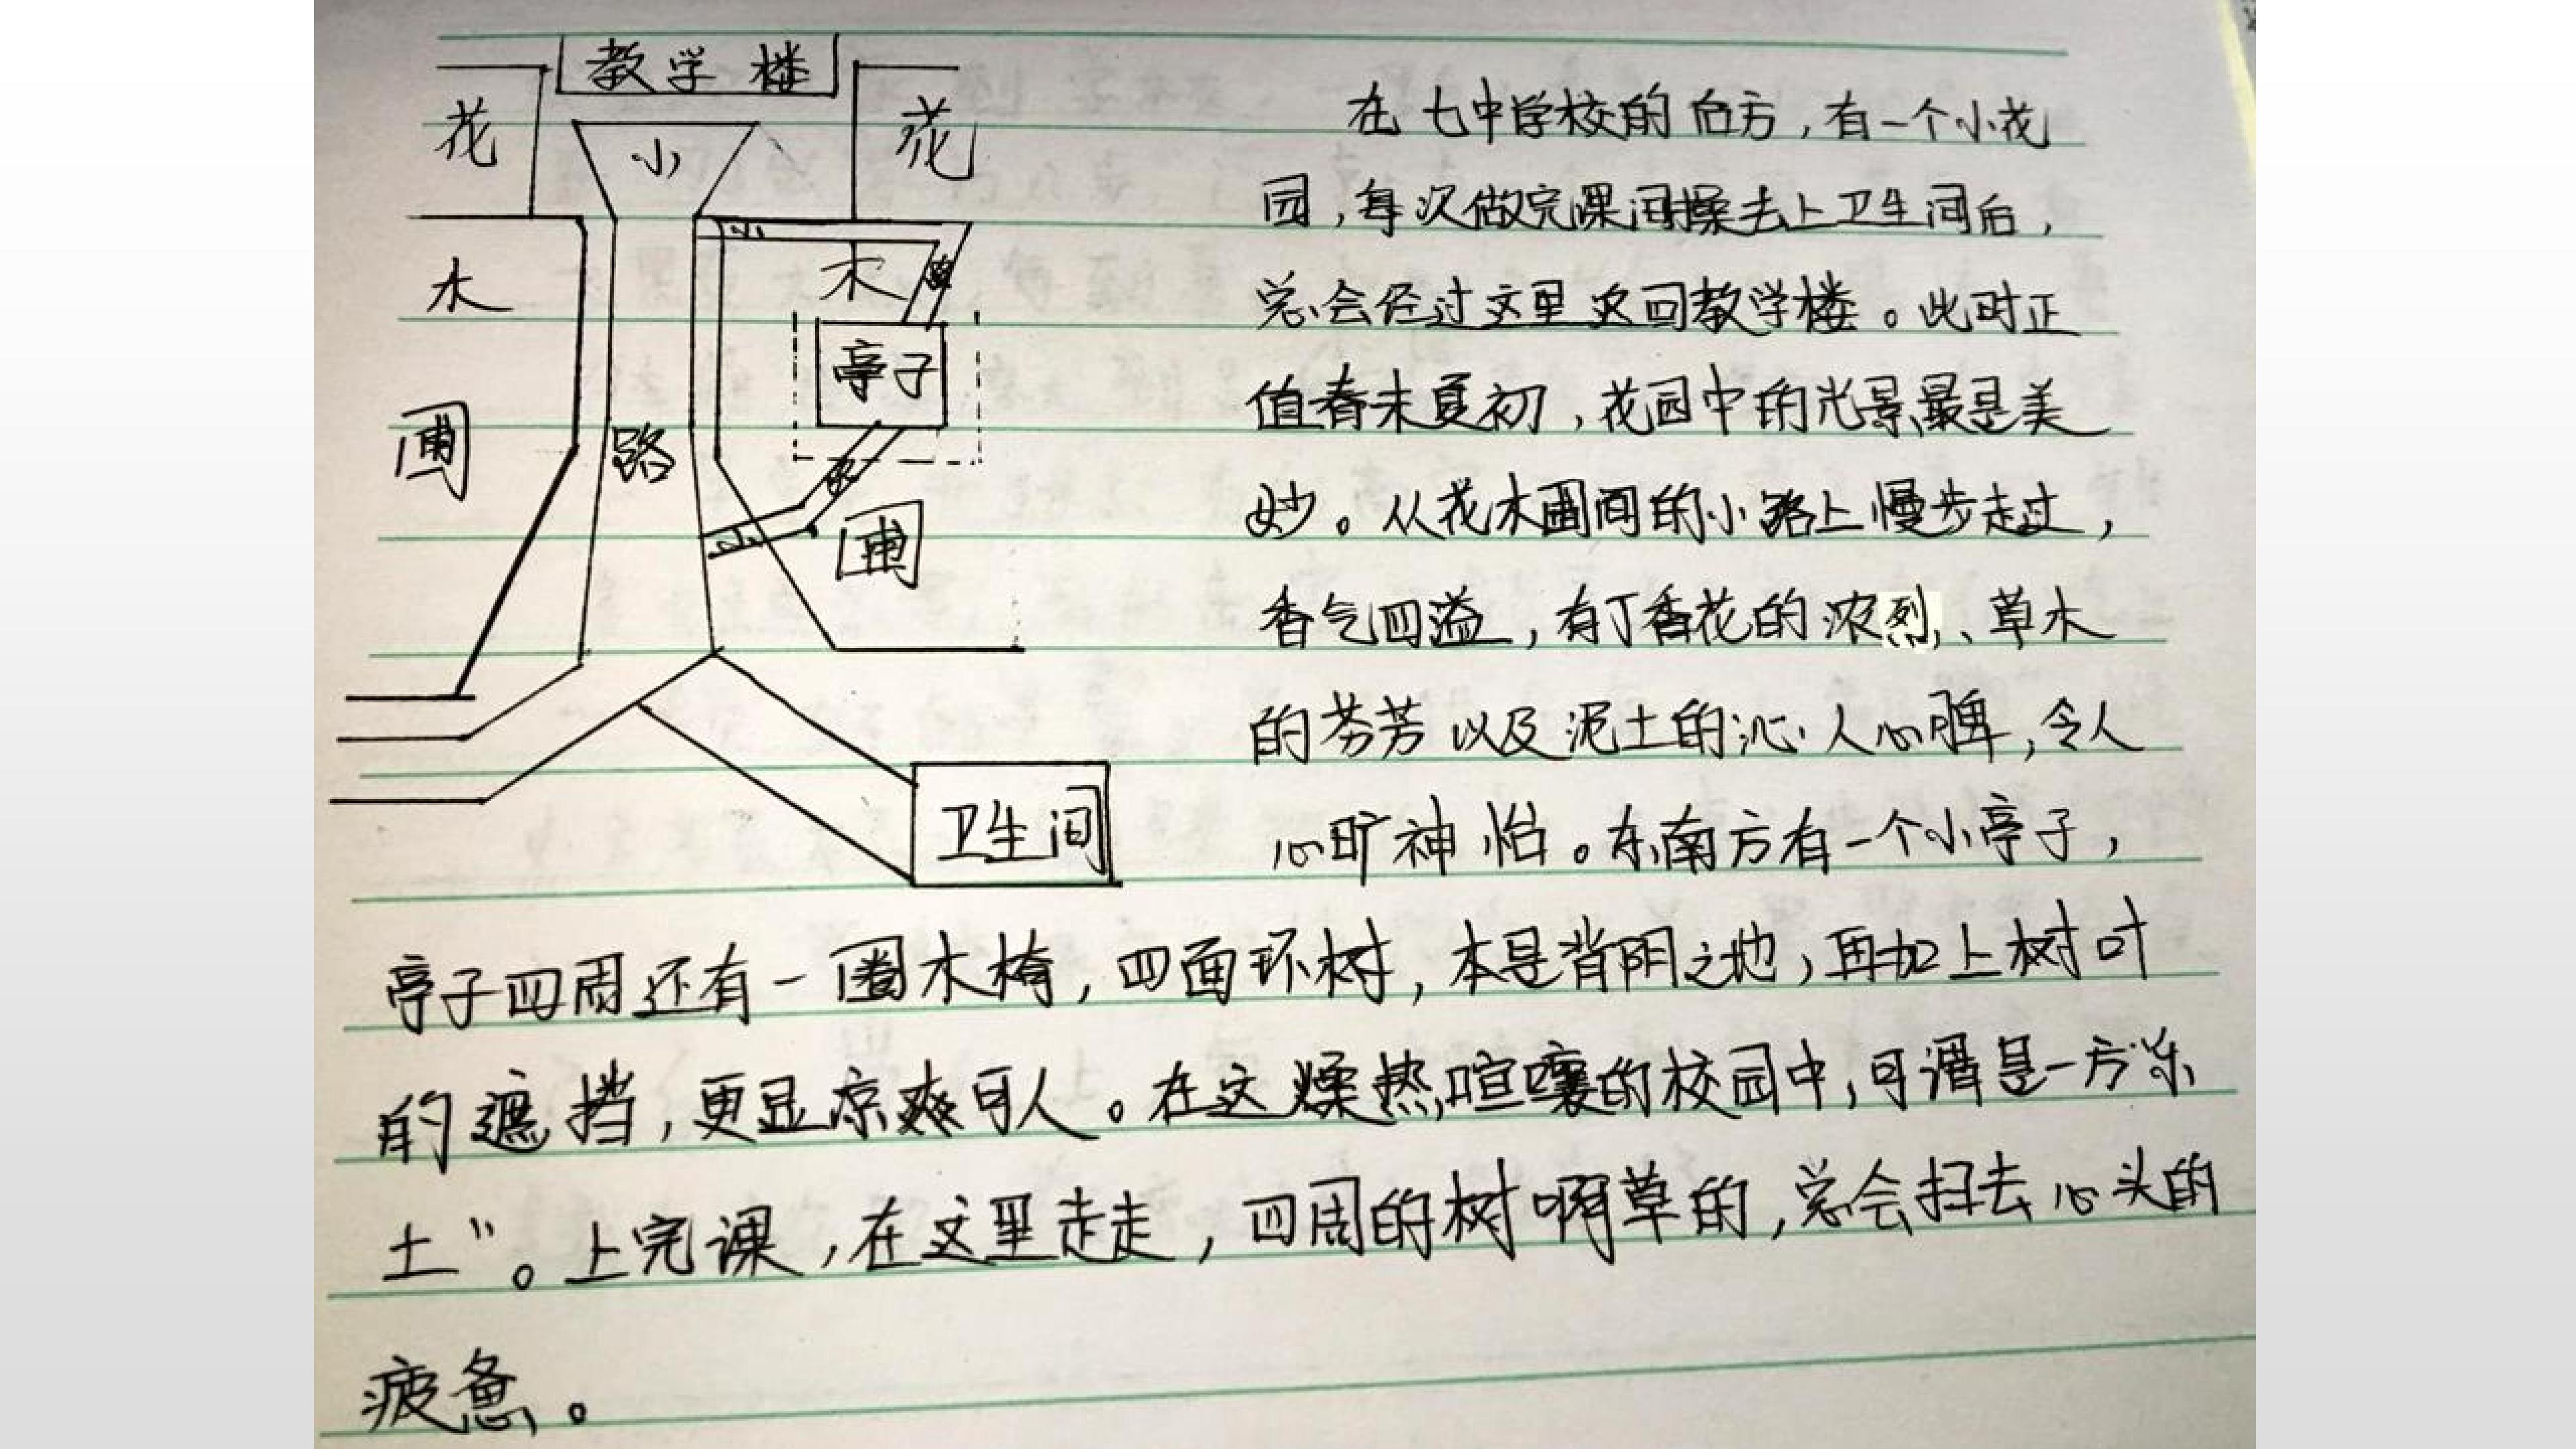 教学楼
花
小
花
木
小
木
路
亭子
圃
路
圃
小
卫生间
在七中学校的后方，有一个小花
园，每次做完课间操去上卫生间后，
总会经过这里返回教学楼。此时正
值春末夏初，花园中的光景最是美
妙。从花木圃间的小路上慢步走过，
香气四溢，有丁香花的浓烈、草木
的芬芳以及泥土的沁人心脾，令人
心旷神怡。东南方有一个小亭子，
亭子四周还有一圈木椅，四面环树，本是背阴之地，再加上树叶
的遮挡，更显凉爽可人。在这燥热喧嚷的校园中，可谓是一方“乐
土”。上完课，在这里走走，四周的树啊草的，总会扫去心头的
疲惫。